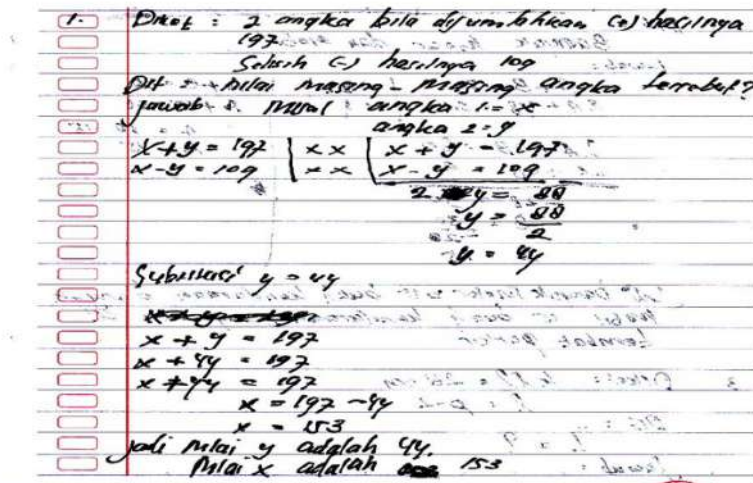 1. Diket : 2 angka bila dijumlahkan (+) hasilnya
197
Selisih (-) hasilnya 109
Dit : Nilai masing-masing angka tersebut?
Jawab : Misal angka 1 = x
angka 2 = y
x + y = 197 | x + y = 197
x - y = 109 | x - y = 109
2y = 88
y = 88
2
y = 44
Subtitusi y = 44
x + y = 197
x + 44 = 197
x + 44 = 197
x = 197 - 44
x = 153
Jadi nilai y adalah 44.
Nilai x adalah 153